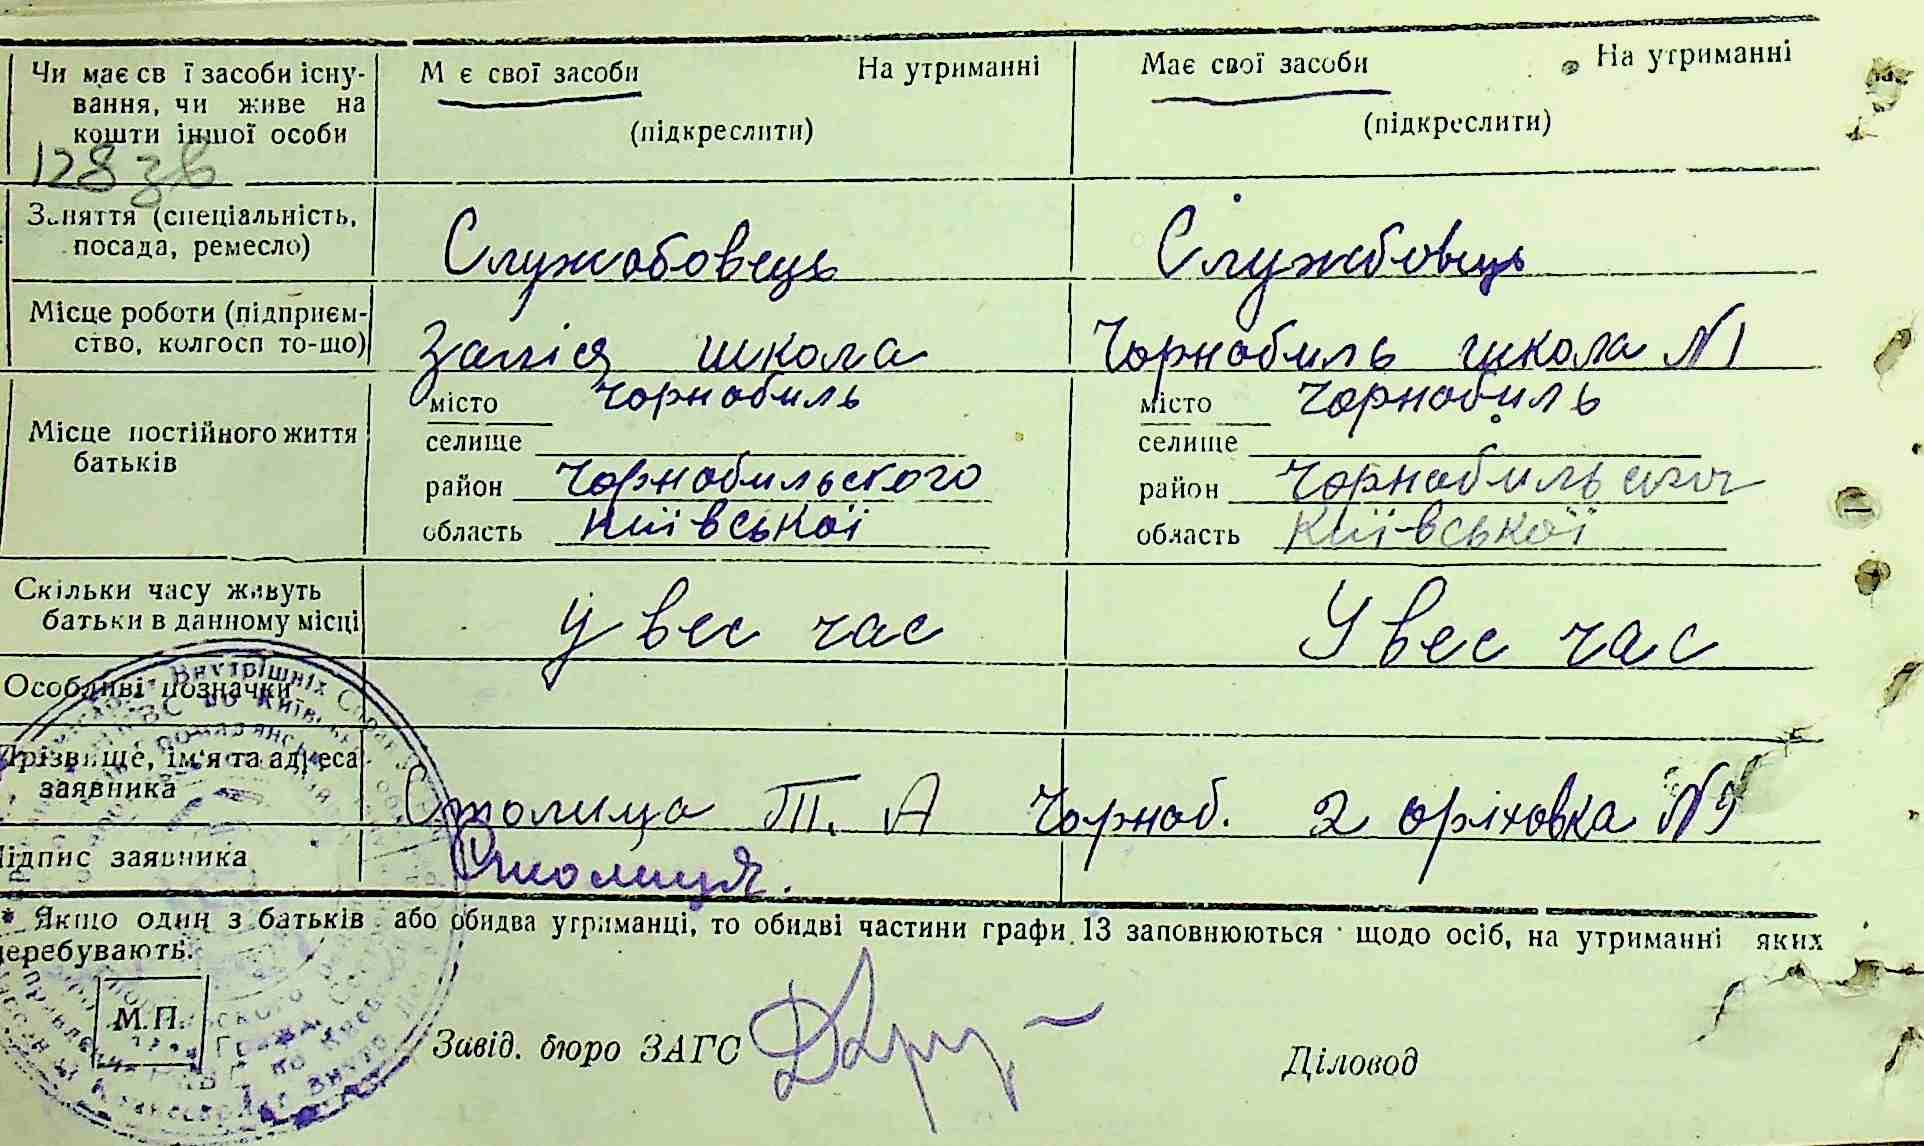 Чи має св ї засоби існу- М є свої засоби На утриманні Має свої засоби На утриманні
вання, чи живе на
кошти іншої особи (підкреслити) (підкреслити)
128 зв
Заняття (спеціальність,
посада, ремесло) Служабовець Службовець
Місце роботи (підприєм-
ство, колгосп то-що) школа Чорнобиль школа №1
місто Чорнобиль місто Чорнобиль
Місце постійного життя
батьків селище селище
район Чорнобильского район Чорнобильского
область Київської область Київської
Скільки часу живуть
батьки в данному місці У вес час У вес час
Особливі позначки
Прізвище, ім'я та адреса
заявника Столица Т. А Чорноб. 2 оріховка №9
Підпис заявника Столиця.
* Якщо один з батьків або обидва утриманці, то обидві частини графи 13 заповнюються щодо осіб, на утриманні яких
перебувають.
М.П.
Завід. бюро ЗАГС Діловод